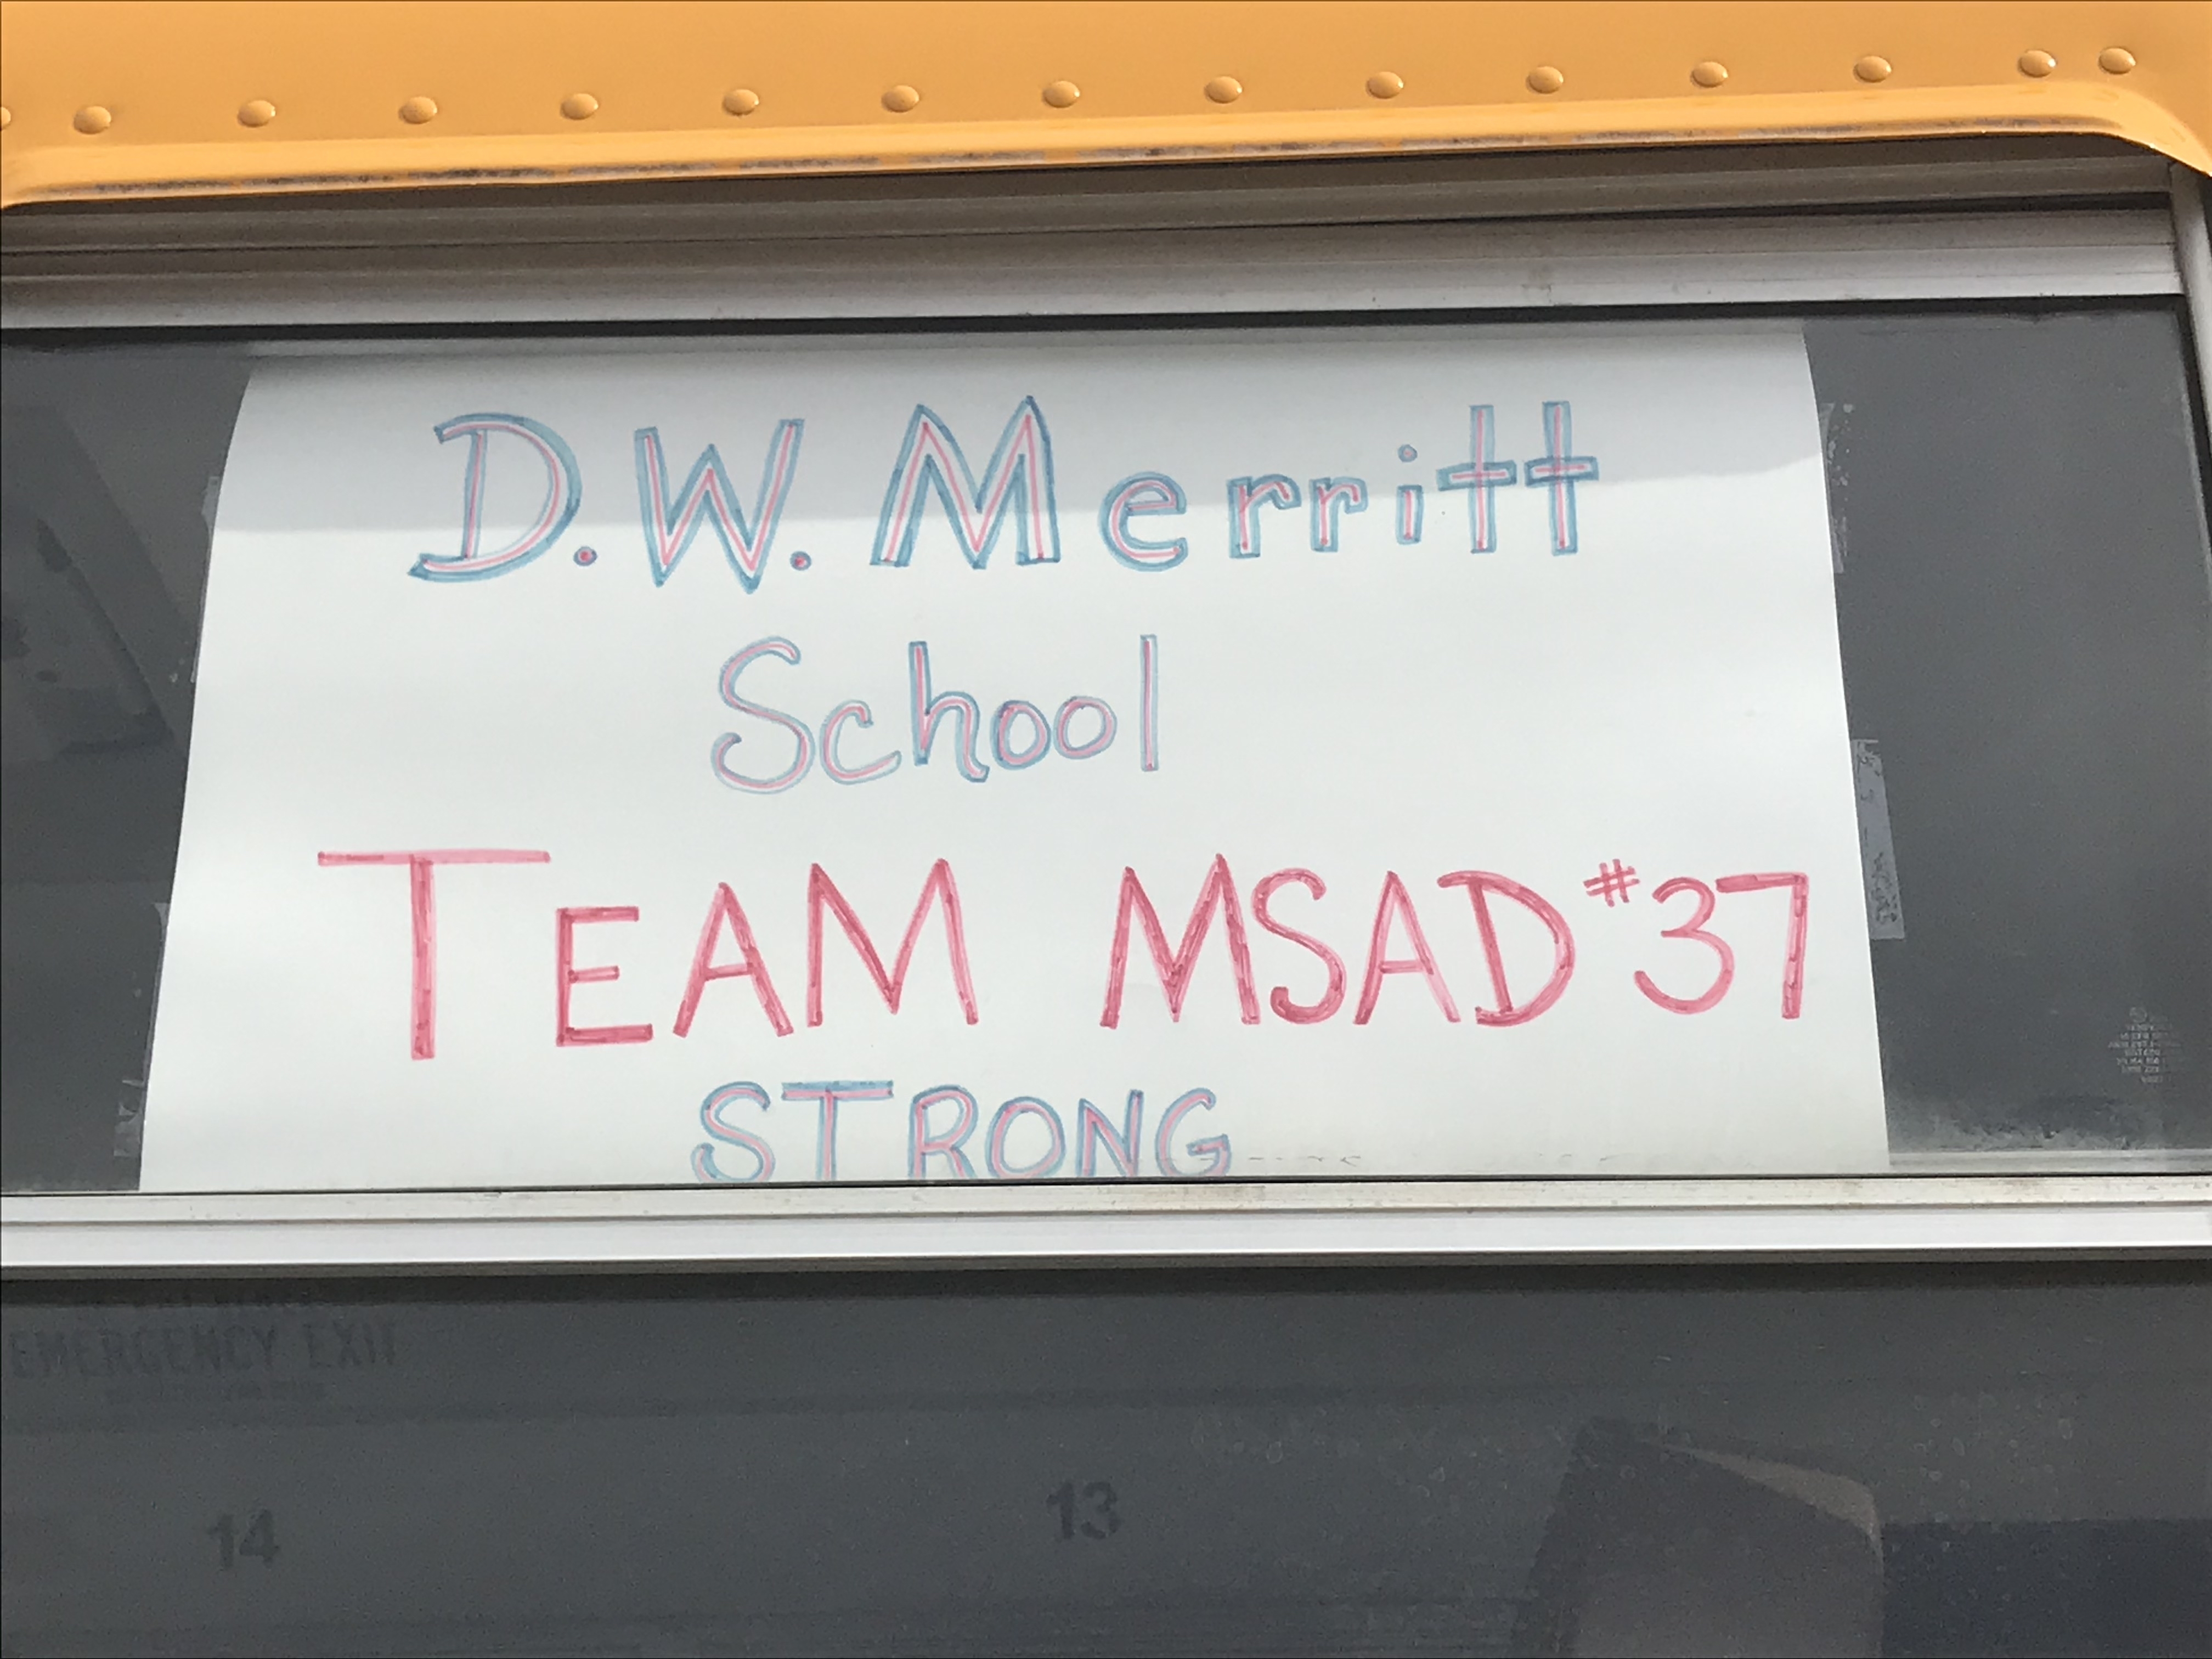 D.W. Merritt
School
TEAM MSAD #37
STRONG
EMERGENCY EXIT
14
13